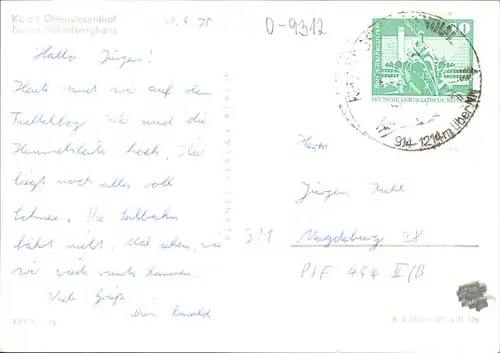 Kurort Oberwiesenthal
Neues Fichtelberghaus
4. 75
0-9312
Hallo Jürgen!
Heute sind wir auf dem
Fichtelberg. Wir sind die
Himmelsleiter hoch. Hier
liegt noch alles voll
Schnee. Die Seilbahn
fährt nicht. Mal sehen, wie
wir wieder runter kommen.
Viele Grüße
Dein
PLANET-VERLAG BERLIN
10
DEUTSCHE DEMOKRATISCHE REPUBLIK
914-1214 m über NN
Herrn
Jürgen
301 Magdeburg 18
PSF 454 II/B